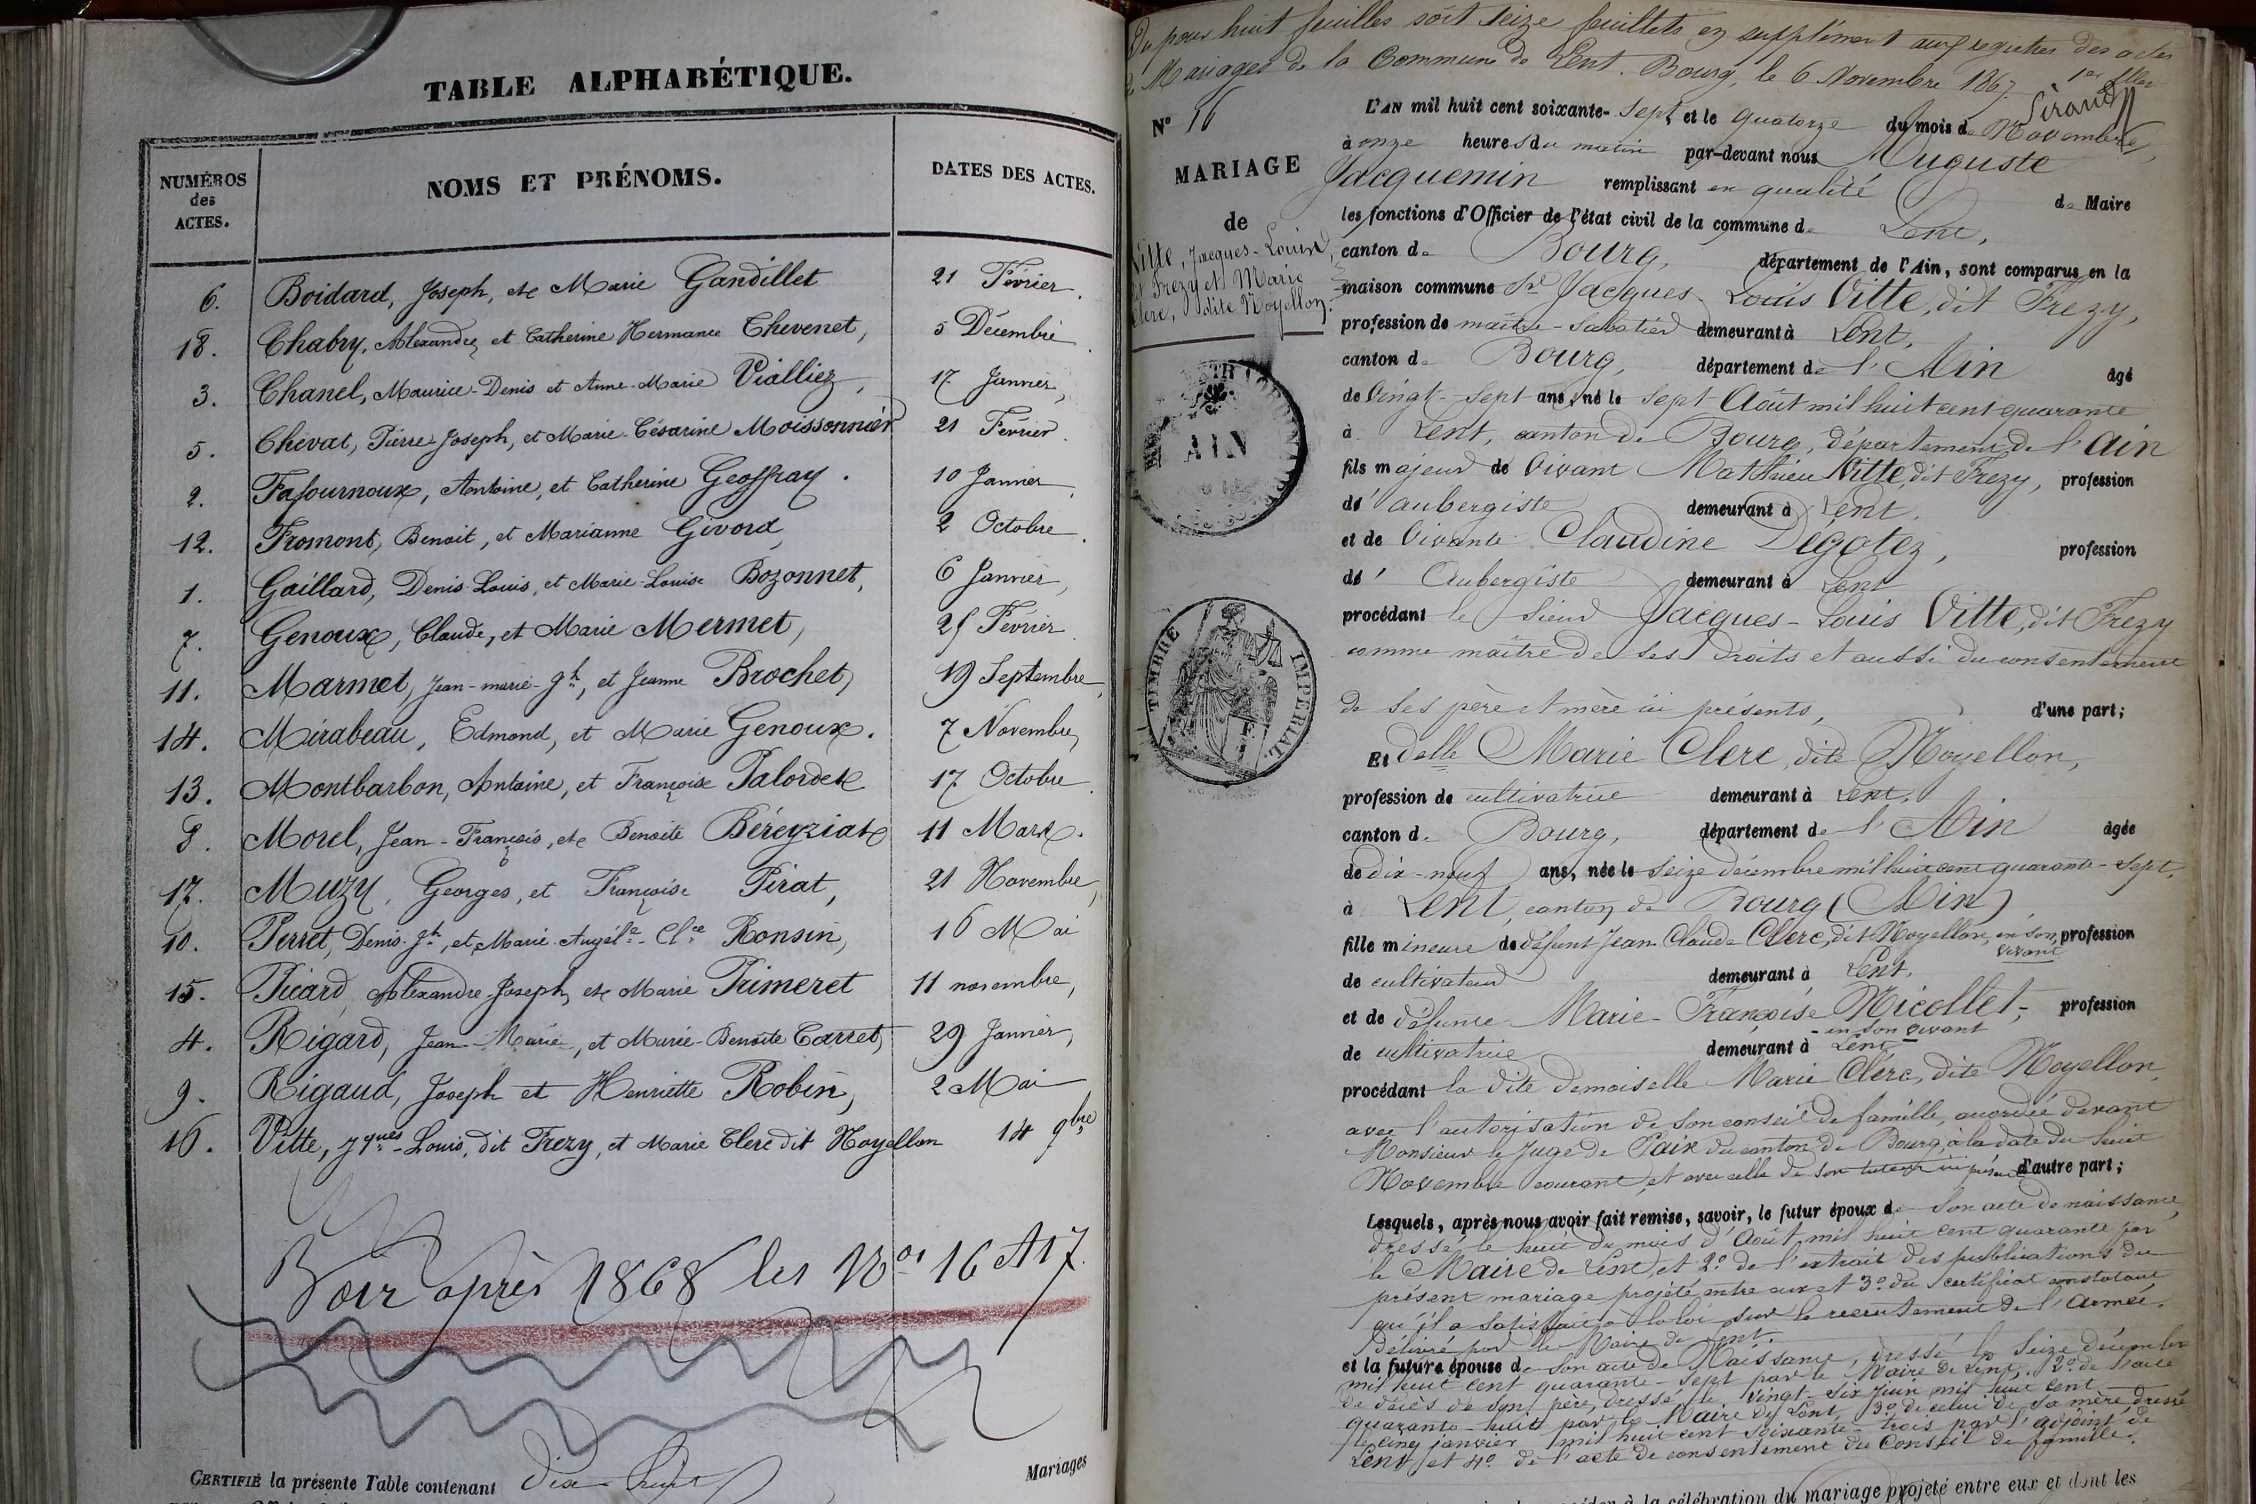 TABLE ALPHABÉTIQUE.
NUMÉROS des ACTES.
NOMS ET PRÉNOMS.
DATES DES ACTES.
6. Boidard, Joseph, et Marie Gandillet 21 Février.
18. Chabry, Alexandre, et Catherine Hermance Chevenet, 5 Décembre.
3. Chanel, Maurice-Denis et Anne-Marie Vialliez, 17 Janvier,
5. Chevat, Pierre Joseph, et Marie-Césarine Moissonnier 21 Février.
2. Fafournoux, Antoine, et Catherine Geoffray. 10 Janvier,
12. Fromont, Benoit, et Marianne Givord, 2 Octobre.
1. Gaillard, Denis-Louis, et Marie-Louise Bozonnet, 6 Janvier,
7. Genoux, Claude, et Marie Mermet, 25 Février
11. Marmet, Jean-marie-Jh, et Jeanne Brochet, 19 Septembre,
14. Mirabeau, Edmond, et Marie Genoux. 7 Novembre,
13. Montbarbon, Antoine, et Françoise Palordet 17 Octobre.
8. Morel, Jean-François, et Benoite Béreyziat 11 Mars.
17. Muzy, Georges, et Françoise Pirat, 21 Novembre,
10. Perret, Denis-Jh, et Marie-Angéle-Clce Ronsin, 16 Mai
15. Picard, Alexandre Joseph, et Marie Primeret 11 novembre,
4. Rigard, Jean-Marie, et Marie-Benoite Carret, 29 Janvier,
9. Rigaud, Joseph et Henriette Robin, 2 Mai
16. Vitte, Jques-Louis, dit Frezy, et Marie Clerc dit Noyellon 14 9bre
Voir après 1868 les Nos 16 et 17.
CERTIFIÉ la présente Table contenant dix-huit Mariages
Vu pour huit feuilles soit seize feuillets en supplément aux registres des actes
de Mariages de la Commune de Lent. Bourg, le 6 Novembre 1867.
Sirand
N° 16
MARIAGE
de
Vitte, Jacques-Louis,
dit Frezy et Marie
Clerc, dite Noyellon.
AIN
TIMBRE IMPÉRIAL
L'AN mil huit cent soixante-sept, et le quatorze du mois de Novembre,
à onze heures du matin par-devant nous Auguste
Jacquemin remplissant en qualité de Maire
les fonctions d'Officier de l'état civil de la commune de Lent,
canton de Bourg, département de l'Ain, sont comparus en la
maison commune Sr Jacques-Louis Vitte, dit Frezy,
profession de maître-Sabotier demeurant à Lent,
canton de Bourg, département de l'Ain âgé
de vingt-sept ans, né le sept Août mil huit cent quarante
à Lent, canton de Bourg, département de l'Ain
fils majeur de vivant Mathieu Vitte, dit Frezy, profession
d'aubergiste demeurant à Lent.
et de vivante Claudine Dégotez, profession
d'Aubergiste demeurant à Lent
procédant le sieur Jacques-Louis Vitte, dit Frezy
comme maître de ses droits et aussi du consentement
de ses père et mère ici présents, d'une part;
Et delle Marie Clerc, dite Noyellon,
profession de cultivatrice demeurant à Lent,
canton de Bourg, département de l'Ain âgée
de dix-neuf ans, née le seize décembre mil huit cent quarante-sept,
à Lent, canton de Bourg (Ain)
fille mineure de défunt Jean Claude Clerc, dit Noyellon, en son vivant profession
de cultivateur demeurant à Lent.
et de défunte Marie-Françoise Nicollet, profession
de cultivatrice en son vivant demeurant à Lent
procédant la dite demoiselle Marie Clerc, dite Noyellon,
avec l'autorisation de son conseil de famille, accordée devant
Monsieur le Juge de Paix du canton de Bourg, à la date du huit
Novembre courant, et avec celle de son tuteur ici présent d'autre part;
Lesquels, après nous avoir fait remise, savoir, le futur époux de son acte de naissance,
dressé le huit du mois d'Août mil huit cent quarante par
le Maire de Lent, et 2° de l'extrait des publications du
présent mariage projeté entre eux et 3° du certificat constatant
qu'il a satisfait à la loi sur le recrutement de l'armée,
délivré par le Maire de Lent.
et la future épouse de son acte de Naissance, dressé le seize décembre
mil huit cent quarante-sept par le Maire de Lent, 2° de l'acte
de décès de son père, dressé le vingt-six Juin mil huit cent
quarante-huit par le Maire de Lent, 3° de celui de sa mère dressé
le cinq janvier mil huit cent soixante-trois par l'adjoint de
Lent, et 4° de l'acte de consentement du Conseil de famille.
à la célébration du mariage projeté entre eux et dont les